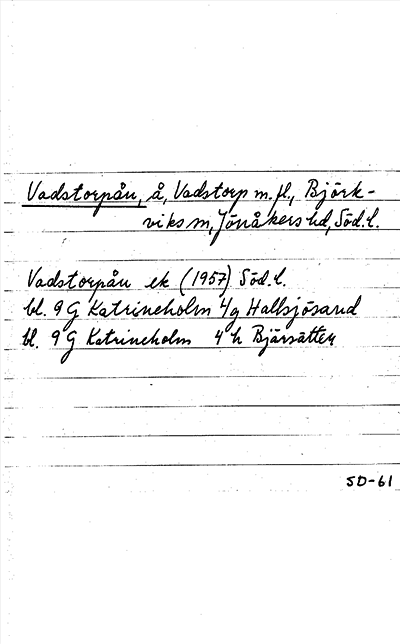 Vadstorpån, å, Vadstorp m.fl., Björk-
viks sn, Jönåkers hd, Söd. l.
Vadstorpån ek (1957) Söd. l.
bl. 9 G Katrineholm 4/g Hallsjösand
bl. 9 G Katrineholm 4 h Bjärsätter
SD-61